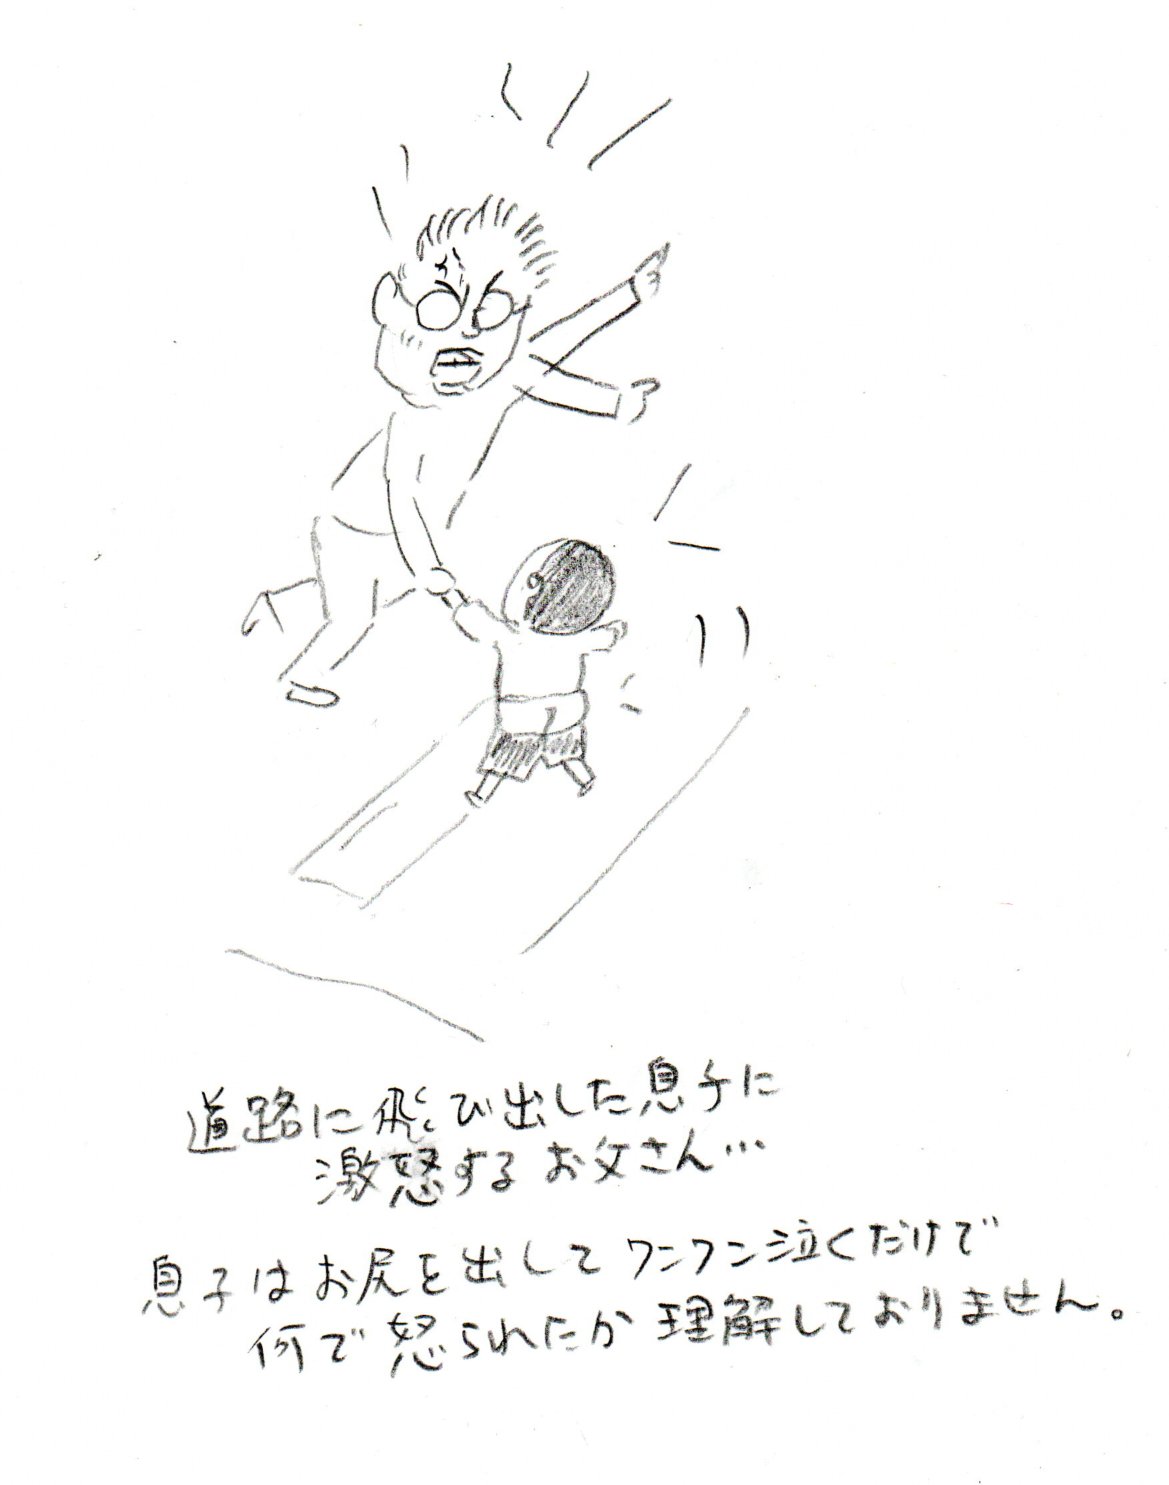 道路に飛び出した息子に
激怒するお父さん…
息子はお尻を出してワンワン泣くだけで
何で怒られたか理解しておりません。